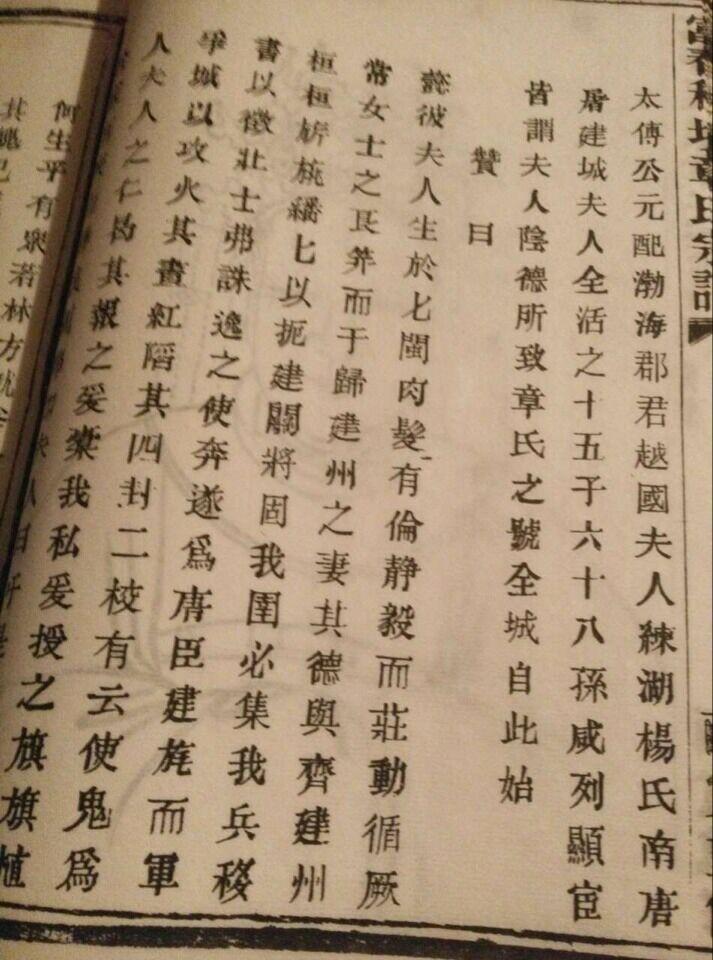 章氏宗譜
太傅公元配渤海郡君越國夫人練湖楊氏南唐
居建城夫人全活之十五子六十八孫咸列顯宦
皆謂夫人陰德所致章氏之號全城自此始
贊曰
彼夫人生於七閩肉髮有倫靜毅而莊動循厥
常女士之艮葬而于歸建州之妻其德與齊建州
桓桓旂旐繙七以扼建關將固我圉必集我兵移
書以徵壯士弗誅逸之使奔遂為唐臣建旄而軍
城以攻火其畫紅陷其四封二校有云使鬼為
人夫人之仁曷其報之爰橐我私爰授之旗旗植
何生平有眾若林方